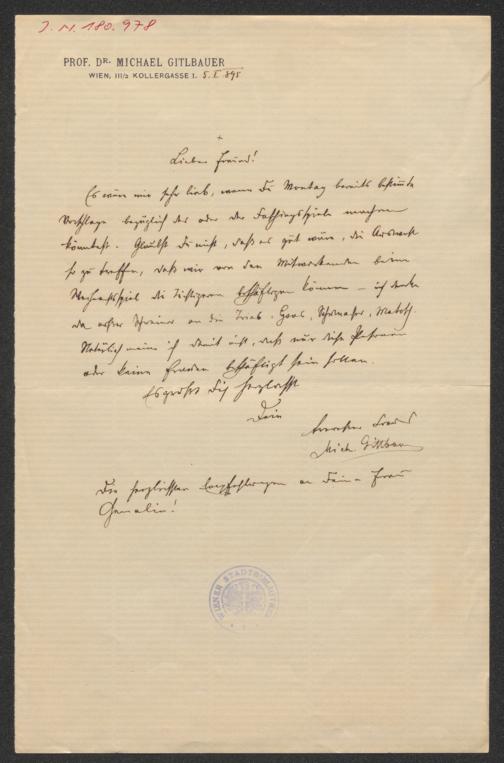 J. N. 180.978
PROF. DR. MICHAEL GITLBAUER
WIEN, III/2 KOLLERGASSE 1. 5. 895
Lieber Freund!
Es wäre mir sehr lieb, wenn Du Montag bereits bestimmte
Vorschläge bezüglich des oder der Faschingsspiele machen
könntest. Glaubst Du nicht, daß es gut wäre, die Auswahl
so zu treffen, daß wir von den Mitwirkenden beim
Weihnachtsspiel die Tüchtigeren beschäftigen können – ich denke
da außer Schreiner an die
Natürlich meine ich damit nicht, daß nur diese Personen
oder keine Frauen beschäftigt sein sollen.
Es grüßt Dich herzlichst
Dein
Mich. Gitlbauer
Die herzlichsten Empfehlungen an Deine Frau
Gemalin!
WIENER STADTBIBLIOTHEK